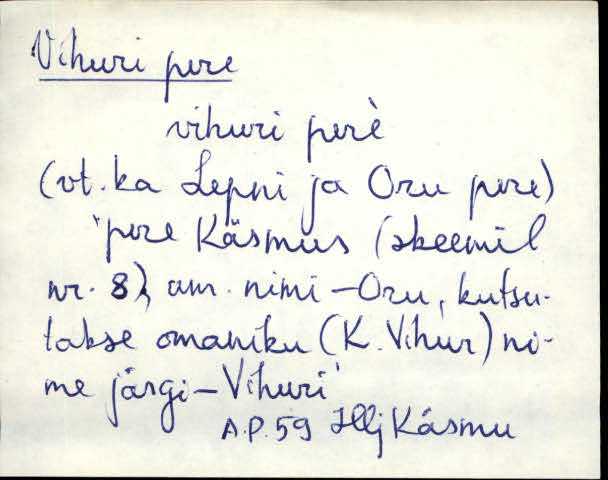 Vihuri pere
vihuri perè
(vt. ka Lepni ja Oru pere)
'pere Käsmus (skeemil
nr. 8), am. nimi - Oru, kutsu-
takse omaniku (K. Vihur) ni-
me järgi - Vihuri'
A.P. 59 Hlj Käsmu